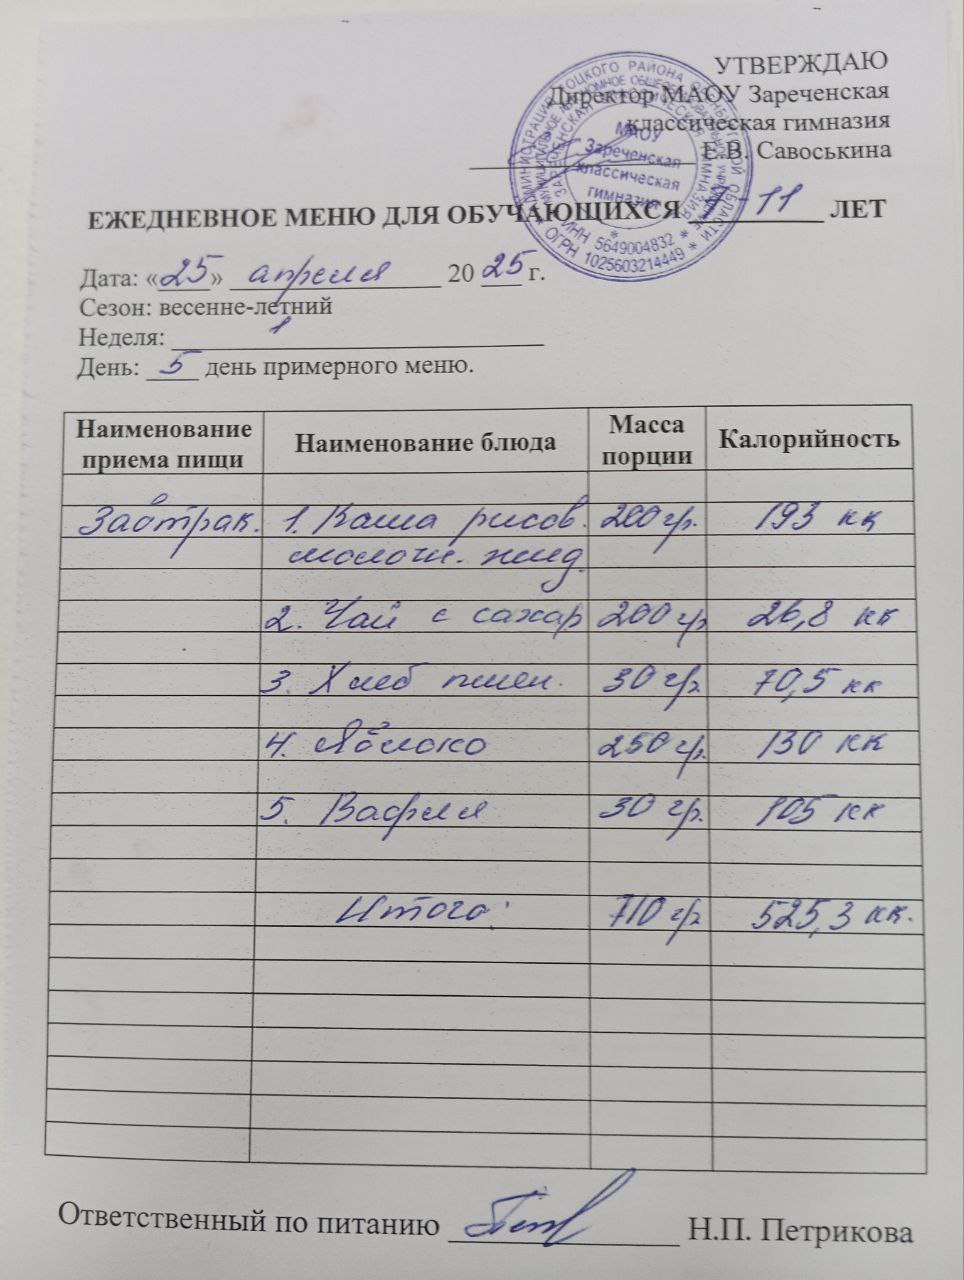 УТВЕРЖДАЮ
Директор МАОУ Зареченская
классическая гимназия
Е.В. Савоськина
МАОУ
Зареченская
классическая
гимназия
* ИНН 5649004832 *
* ОГРН 1025603214449 *
ЕЖЕДНЕВНОЕ МЕНЮ ДЛЯ ОБУЧАЮЩИХСЯ - 11 ЛЕТ
Дата: «25» апреля 2025 г.
Сезон: весенне-летний
Неделя: 1
День: 5 день примерного меню.
Наименование приема пищи Наименование блюда Масса порции Калорийность
Завтрак. 1. Каша рисов. 200 гр. 193 кк
молочн. жид.
2. Чай с сахар 200 гр 26,8 кк
3. Хлеб пшен. 30 гр. 70,5 кк
4. Яблоко 250 гр. 130 кк
5. Вафля 30 гр. 105 кк
Итого: 710 гр 525,3 кк.
Ответственный по питанию Н.П. Петрикова